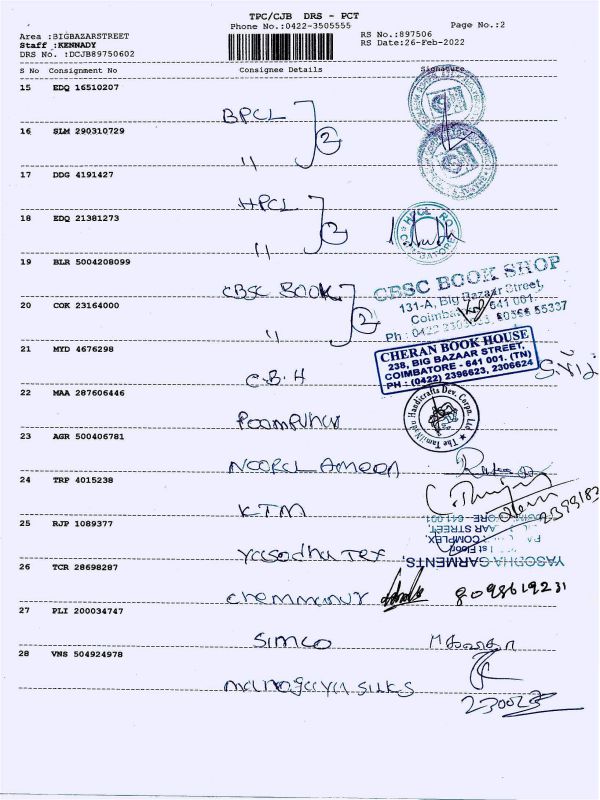 TPC/CJB DRS - PCT
Phone No.:0422-3505555
Page No.:2
Area :BIGBAZARSTREET
Staff :KENNADY
DRS No. :DCJB89750602
RS No.:897506
RS Date:26-Feb-2022
S No Consignment No Consignee Details Signature
15 EDQ 16510207
BPCL
2
16 SLM 290310729
"
17 DDG 4191427
HPCL
2
18 EDQ 21381273
"
19 BLR 5004208099
CBSC BOOK
2
CBSC BOOK SHOP
131-A, Big Bazaar Street,
20 COK 23164000
"
641 001.
21 MYD 4676298
C.B.H
CHERAN BOOK HOUSE
238, BIG BAZAAR STREET,
COIMBATORE - 641 001. (TN)
PH : (0422) 2396623, 2306624
22 MAA 287606446
Poompuhar
The Tamil Nadu Handicrafts Dev. Corpn. Ltd
23 AGR 500406781
NOORUL AMEEN
24 TRP 4015238
KTM
25 RJP 1089377
Yasodha Tex
YASODHA GARMENTS,
1st Floor
COMPLEX,
26 TCR 28698287
Chemmanur
8098619231
27 PLI 200034747
SIMCO
28 VNS 504924978
manogaya silks